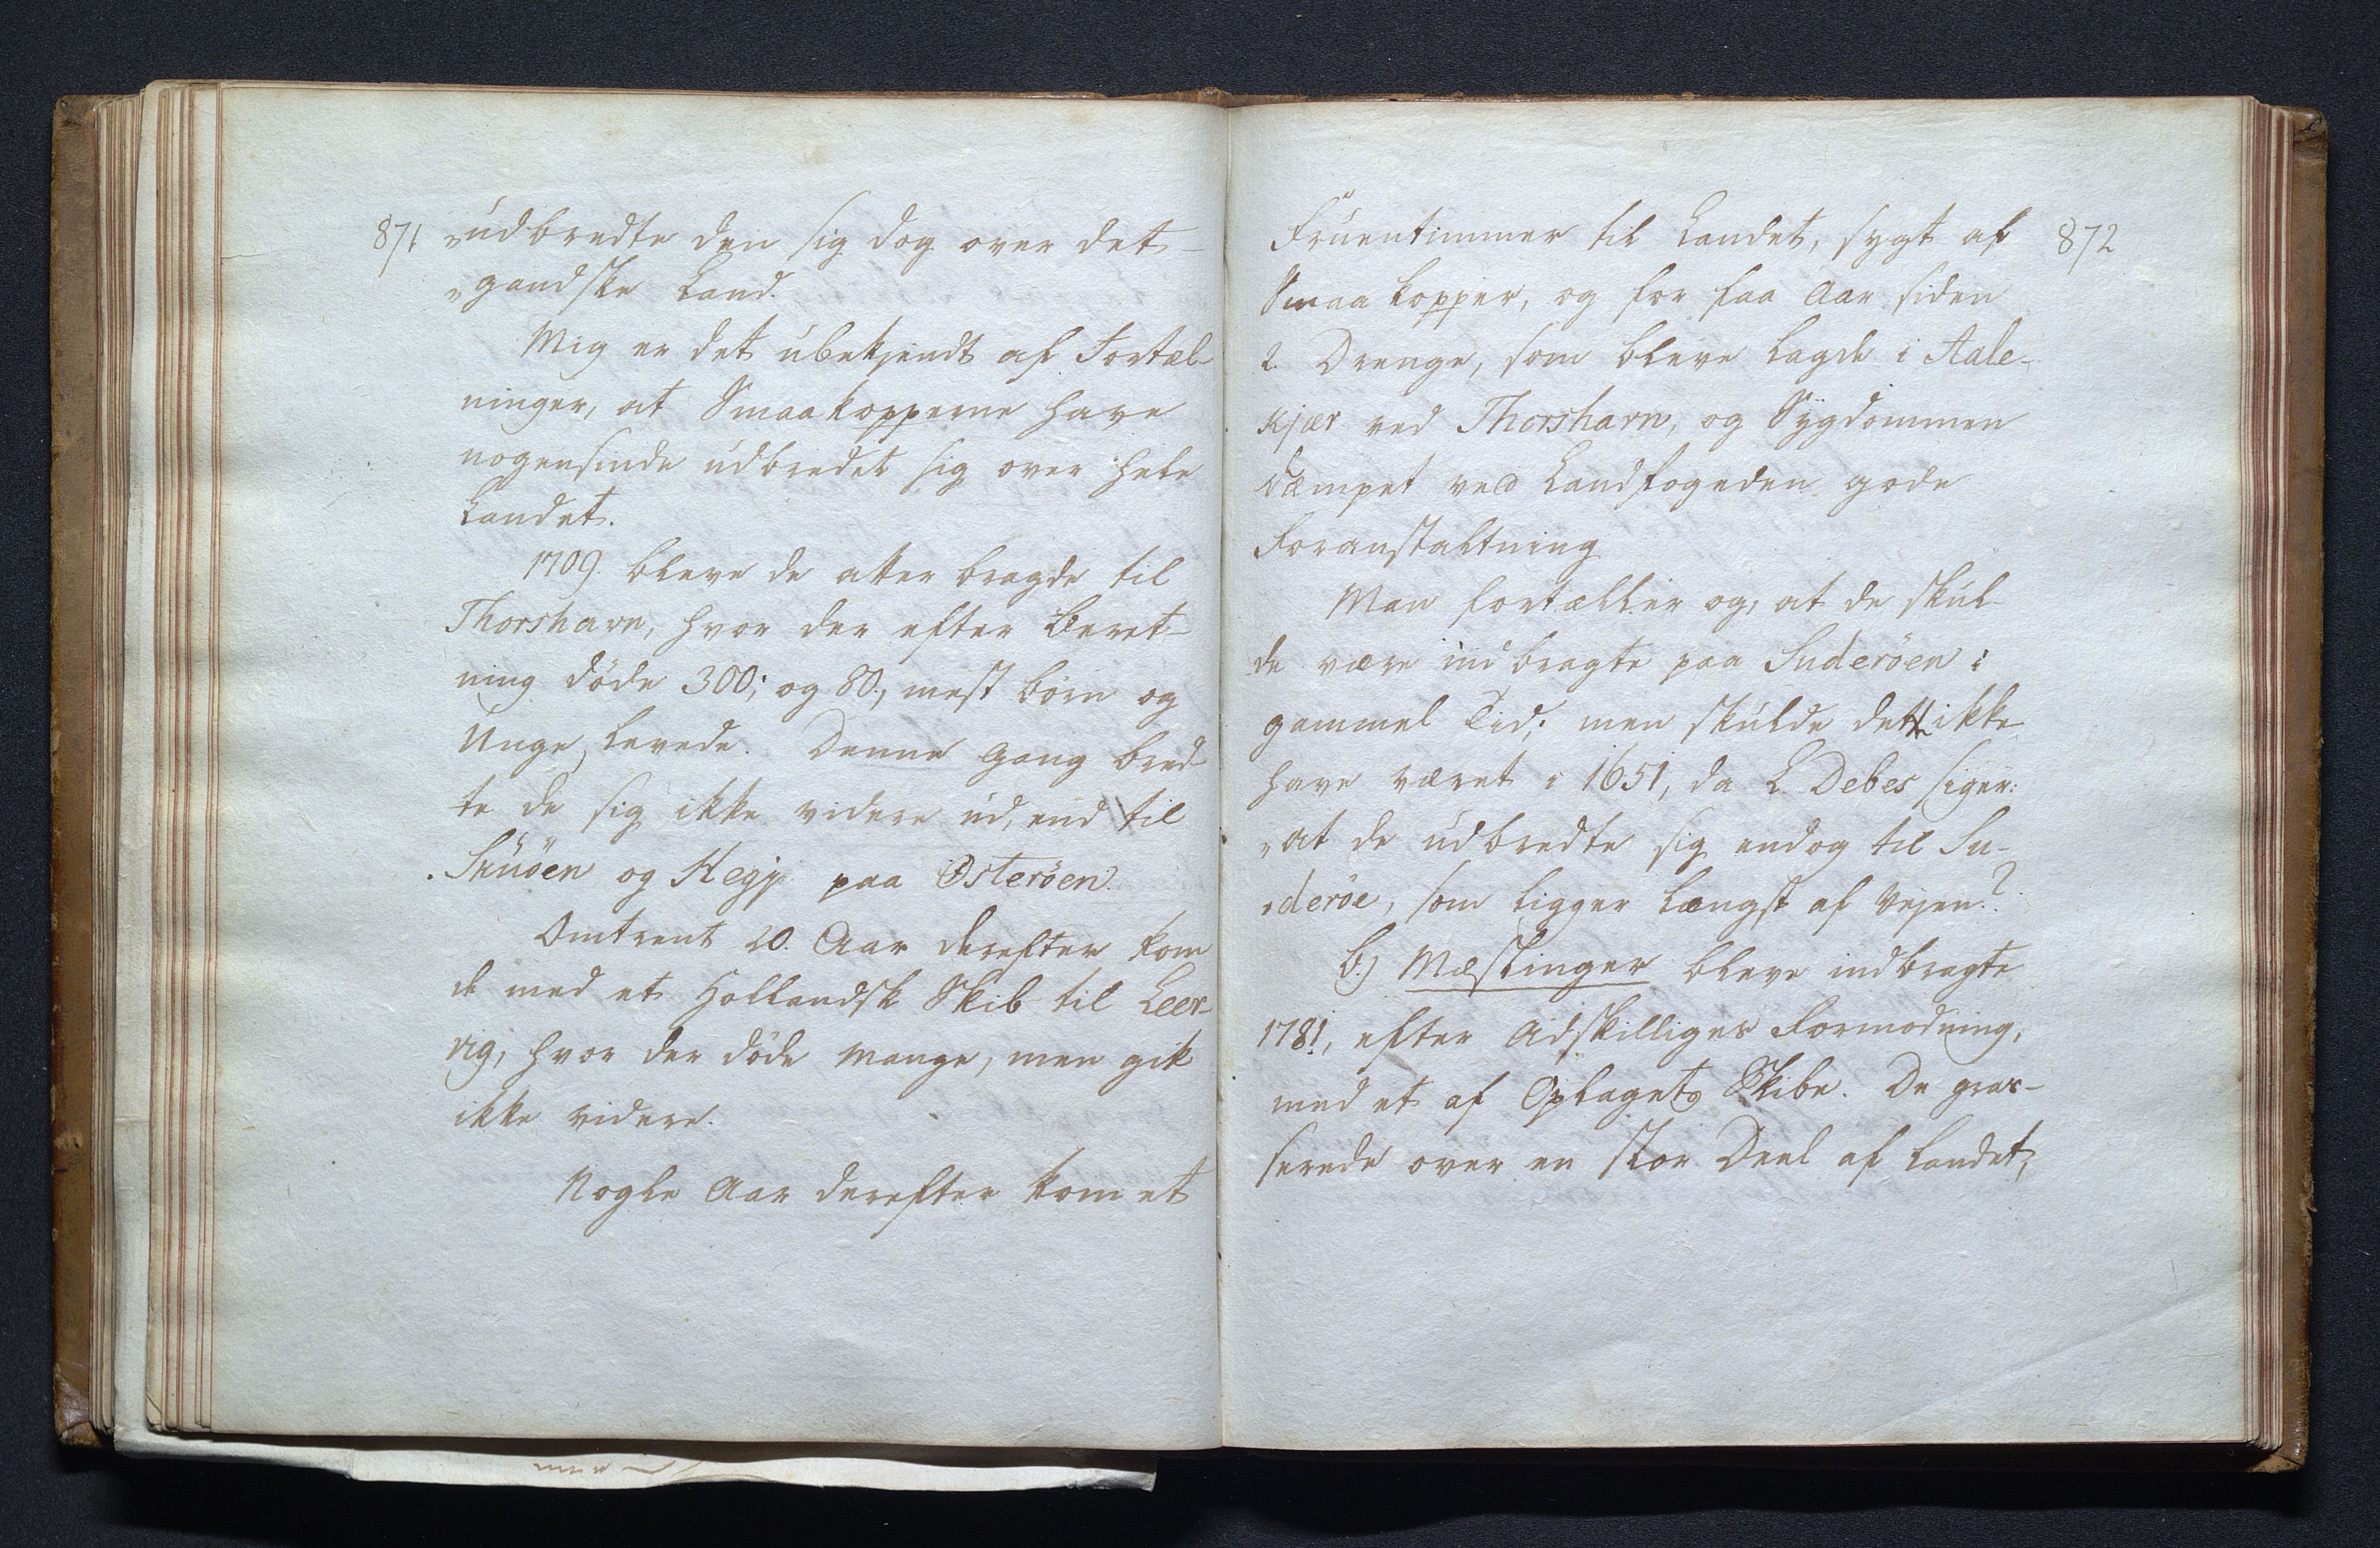 871
„udbredte den sig dog over det
„gandske Land.
Mig er det ubekjendt af Fortæl-
ninger, at Smaakopperne have
nogensinde udbredet sig over hele
Landet.
1709 bleve de atter bragde til
Thorshavn, hvor der efter Beret-
ning döde 300; og 80, mest börn og
Unge, levede. Denne Gang bred-
te de sig ikke videre ud, end til
Skuöen og Hegje paa Österöen.
Omtrent 20. Aar derefter kom
de med et Hollandsk Skib til Leer-
vig, hvor der döde mange, men gik
ikke videre.
Nogle Aar derefter kom et
872
Fruentimmer til Landet, sygt af
Smaakopper, og for faa Aar siden
2. Drenge, som bleve lagde i Aale-
kjær ved Thorshavn, og Sygdommen
dæmpet ved Landfogeden gode
Foranstaltning
Man fortæller og, at de skul-
de være indbragte paa Suderöen i
gammel Tid; men skulde dette ikke
have været i 1651, da L. Debes siger:
„at de udbredte sig endog til Su-
„deröe, som ligger længst af Vejen?
b.) Mæslinger bleve indbragte
1781, efter Adskilliges Formodning,
med et af Oplagets Skibe. De gras-
serede over en stor Deel af Landet,